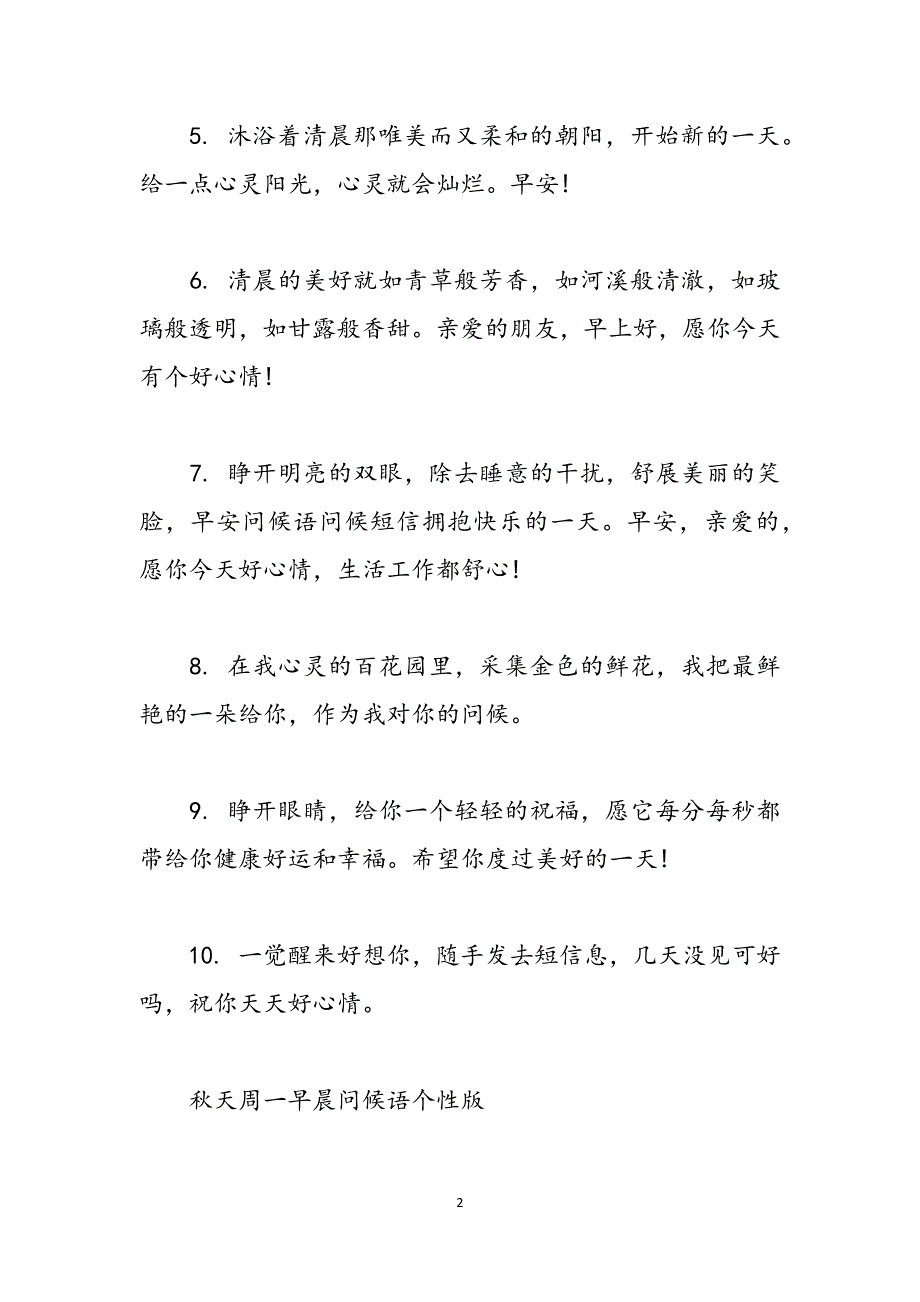 5. 沐浴着清晨那唯美而又柔和的朝阳，开始新的一天。
给一点心灵阳光，心灵就会灿烂。早安！
6. 清晨的美好就如青草般芳香，如河溪般清澈，如玻
璃般透明，如甘露般香甜。亲爱的朋友，早上好，愿你今天
有个好心情！
7. 睁开明亮的双眼，除去睡意的干扰，舒展美丽的笑
脸，早安问候语问候短信拥抱快乐的一天。早安，亲爱的，
愿你今天好心情，生活工作都舒心！
8. 在我心灵的百花园里，采集金色的鲜花，我把最鲜
艳的一朵给你，作为我对你的问候。
9. 睁开眼睛，给你一个轻轻的祝福，愿它每分每秒都
带给你健康好运和幸福。希望你度过美好的一天！
10. 一觉醒来好想你，随手发去短信息，几天没见可好
吗，祝你天天好心情。
秋天周一早晨问候语个性版
2